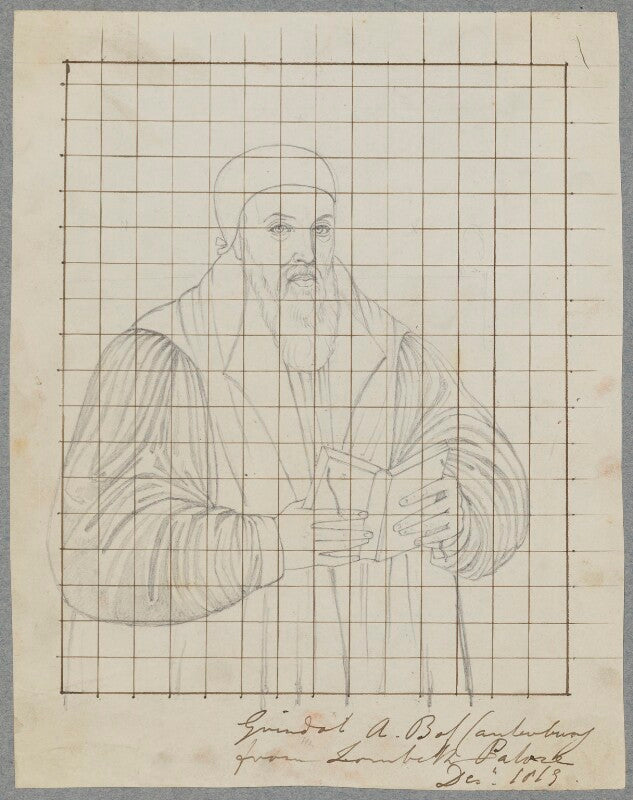 Grindal A. Bp Canterbury
from Lambeth Palace
Decr. 1819.